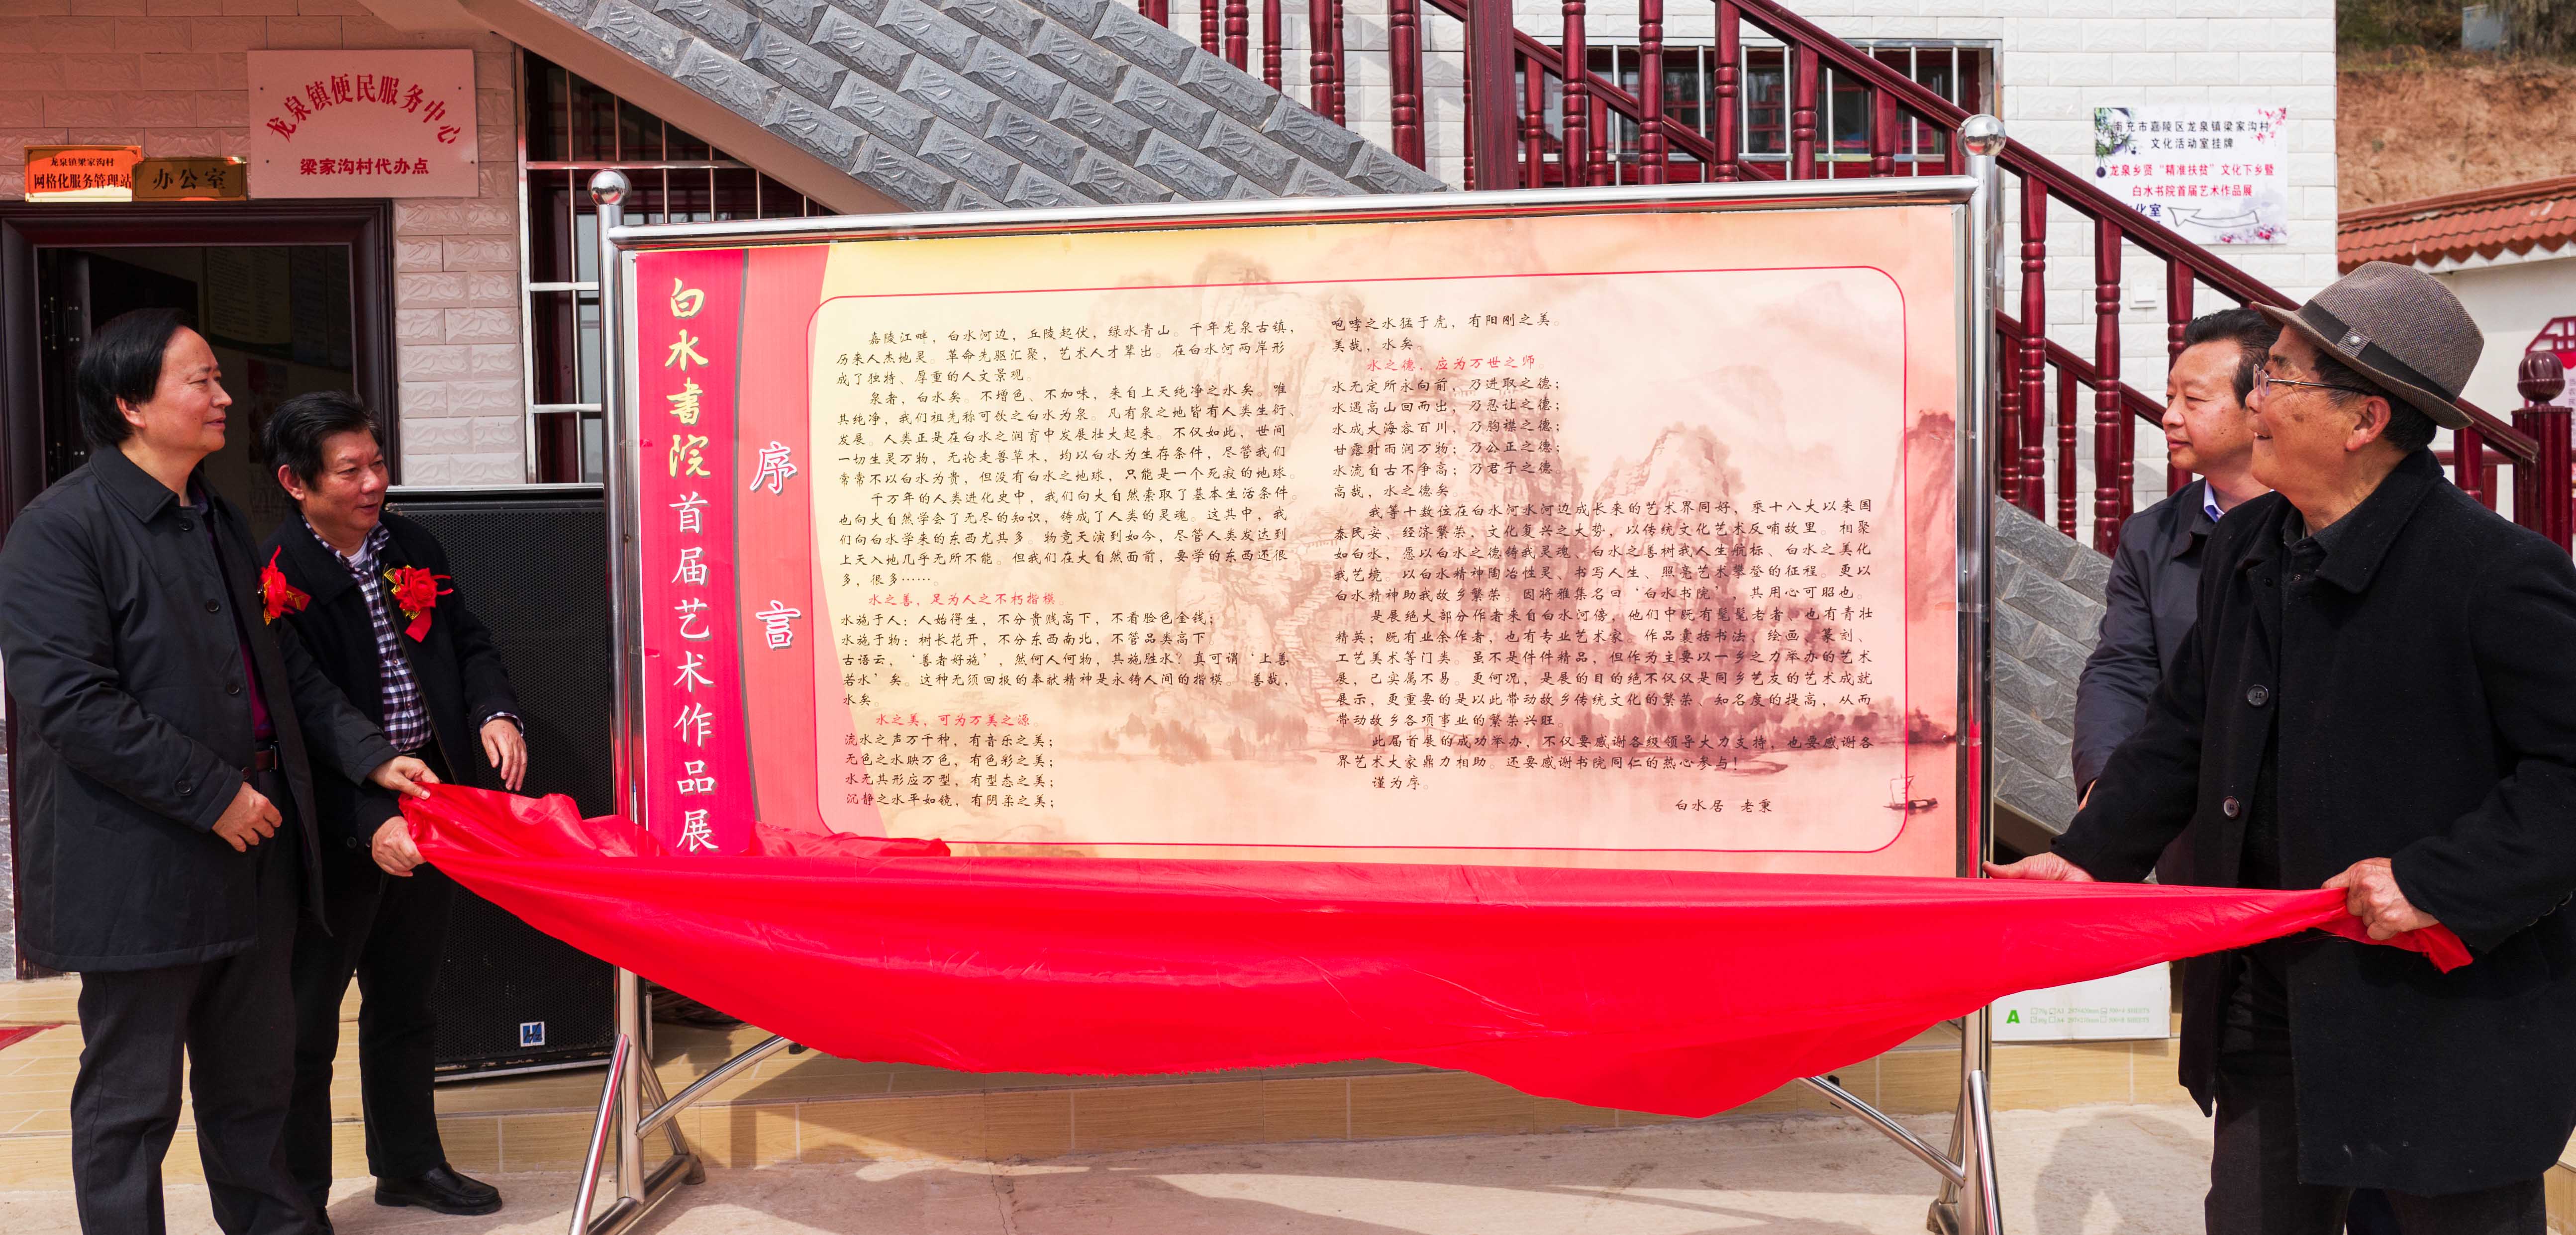 龙泉镇便民服务中心
梁家沟村代办点
龙泉镇梁家沟村
网格化服务管理站
办公室
南充市嘉陵区龙泉镇梁家沟村
文化活动室挂牌
龙泉乡贤“精准扶贫”文化下乡暨
白水书院首届艺术作品展
化室
白水书院首届艺术作品展
序言
嘉陵江畔，白水河边，丘陵起伏，绿水青山。千年龙泉古镇，
历来人杰地灵。革命先驱汇聚，艺术人才辈出。在白水河两岸形
成了独特、厚重的人文景观。
泉者，白水矣。不增色、不加味，来自上天纯净之水矣。唯
其纯净，我们祖先称可饮之白水为泉。凡有泉之地皆有人类生衍、
发展。人类正是在白水之润育中发展壮大起来。不仅如此，世间
一切生灵万物，无论走兽草木，均以白水为生存条件，尽管我们
常常不以白水为贵，但没有白水之地球，只能是一个死寂的地球。
千万年的人类进化史中，我们向大自然索取了基本生活条件。
也向大自然学会了无尽的知识，铸成了人类的灵魂。这其中，我
们向白水学来的东西尤其多。物竟天演到如今，尽管人类发达到
上天入地几乎无所不能。但我们在大自然面前，要学的东西还很
多，很多……。
水之善，足为人之不朽楷模。
水施于人：人始得生，不分贵贱高下，不看脸色金钱；
水施于物：树长花开，不分东西南北，不管品类高下
古语云，‘善者好施’，然何人何物，其施胜水？真可谓‘上善
若水’矣。这种无须回报的奉献精神是永铸人间的楷模。 善哉，
水矣
水之美，可为万美之源。
流水之声万千种，有音乐之美；
无色之水映万色，有色彩之美；
水无其形应万型，有型态之美；
沉静之水平如镜，有阴柔之美；
咆哮之水猛于虎，有阳刚之美。
美哉，水矣。
水之德，应为万世之师。
水无定所永向前，乃进取之德；
水遇高山回而出，乃忍让之德；
水成大海容百川，乃胸襟之德；
甘露时雨润万物；乃公正之德；
水流自古不争高；乃君子之德。
高哉，水之德矣。
我等十数位在白水河水河边成长来的艺术界同好，乘十八大以来国
泰民安、经济繁荣，文化复兴之大势，以传统文化艺术反哺故里。相聚
如白水，愿以白水之德铸我灵魂、白水之善树我人生航标、白水之美化
我艺境。以白水精神陶冶性灵、书写人生、照亮艺术攀登的征程。更以
白水精神助我故乡繁荣。因将雅集名曰‘白水书院’，其用心可昭也。
是展绝大部分作者来自白水河傍，他们中既有髦髦老者、也有青壮
精英；既有业余作者，也有专业艺术家。作品囊括书法、绘画、篆刻、
工艺美术等门类。虽不是件件精品，但作为主要以一乡之力举办的艺术
展，已实属不易。更何况，是展的目的绝不仅仅是同乡艺友的艺术成就
展示，更重要的是以此带动故乡传统文化的繁荣、知名度的提高，从而
带动故乡各项事业的繁荣兴旺。
此届首展的成功举办，不仅要感谢各级领导大力支持，也要感谢各
界艺术大家鼎力相助。还要感谢书院同仁的热心参与！
谨为序。
白水居 老秉